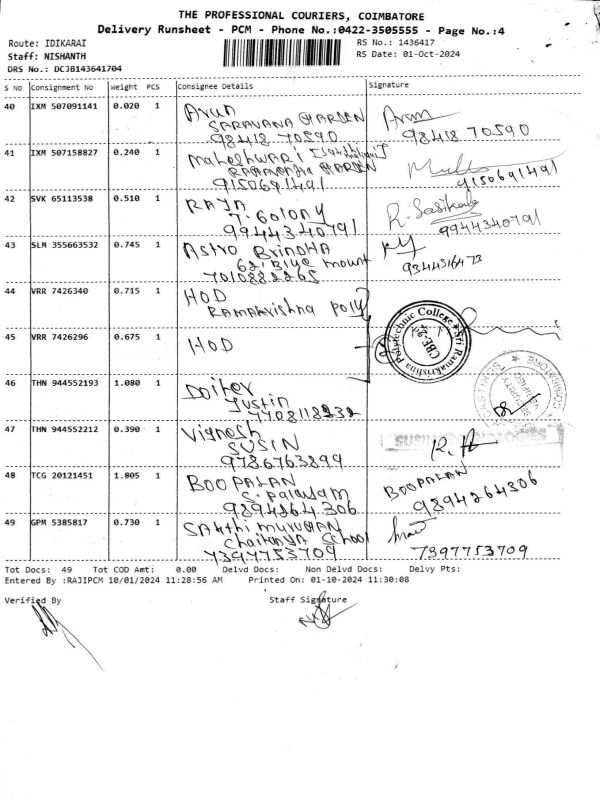 THE PROFESSIONAL COURIERS, COIMBATORE
Delivery Runsheet - PCM - Phone No.:0422-3505555 - Page No.:4
Route: IDIKARAI
RS No.: 1436417
Staff: NISHANTH
RS Date: 01-Oct-2024
DRS No.: DCJB143641704
S No Consignment No Weight PCS Consignee Details Signature
40 IXM 507091141 0.020 1 Arun Arun
SARAVANA GARDEN
98418 70590 98418 70590
41 IXM 507158827 0.240 1 Maheshwari
GARDEN
9150691491 9150691491
42 SVK 65113538 0.510 1 RAJA R. Sasikala
T. Colony
9944340791 9944340791
43 SLM 355663532 0.745 1 Astro Brindha
62, Blue mount
7010882265
44 VRR 7426340 0.715 1 HOD
Ramakrishna poly
45 VRR 7426296 0.675 1 HOD
Sri Ramakrishna Polytechnic College
CBE-
46 THN 944552193 1.080 1
Justin
7708118232
SECURITY
VERIFIED
COIMBATORE
47 THN 944552212 0.390 1 Vignesh
SUSIN
9786763899
48 TCG 20121451 1.805 1 BOOPALAN BOOPALAN
S. Palayam
9894264306 9894264306
49 GPM 5385817 0.730 1 Sakthi murugan
Chaitanya School
7397753709 7397753709
Tot Docs: 49 Tot COD Amt: 0.00 Delvd Docs: Non Delvd Docs: Delvy Pts:
Entered By :RAJIPCM 10/01/2024 11:28:56 AM Printed On: 01-10-2024 11:30:08
Verified By Staff Signature